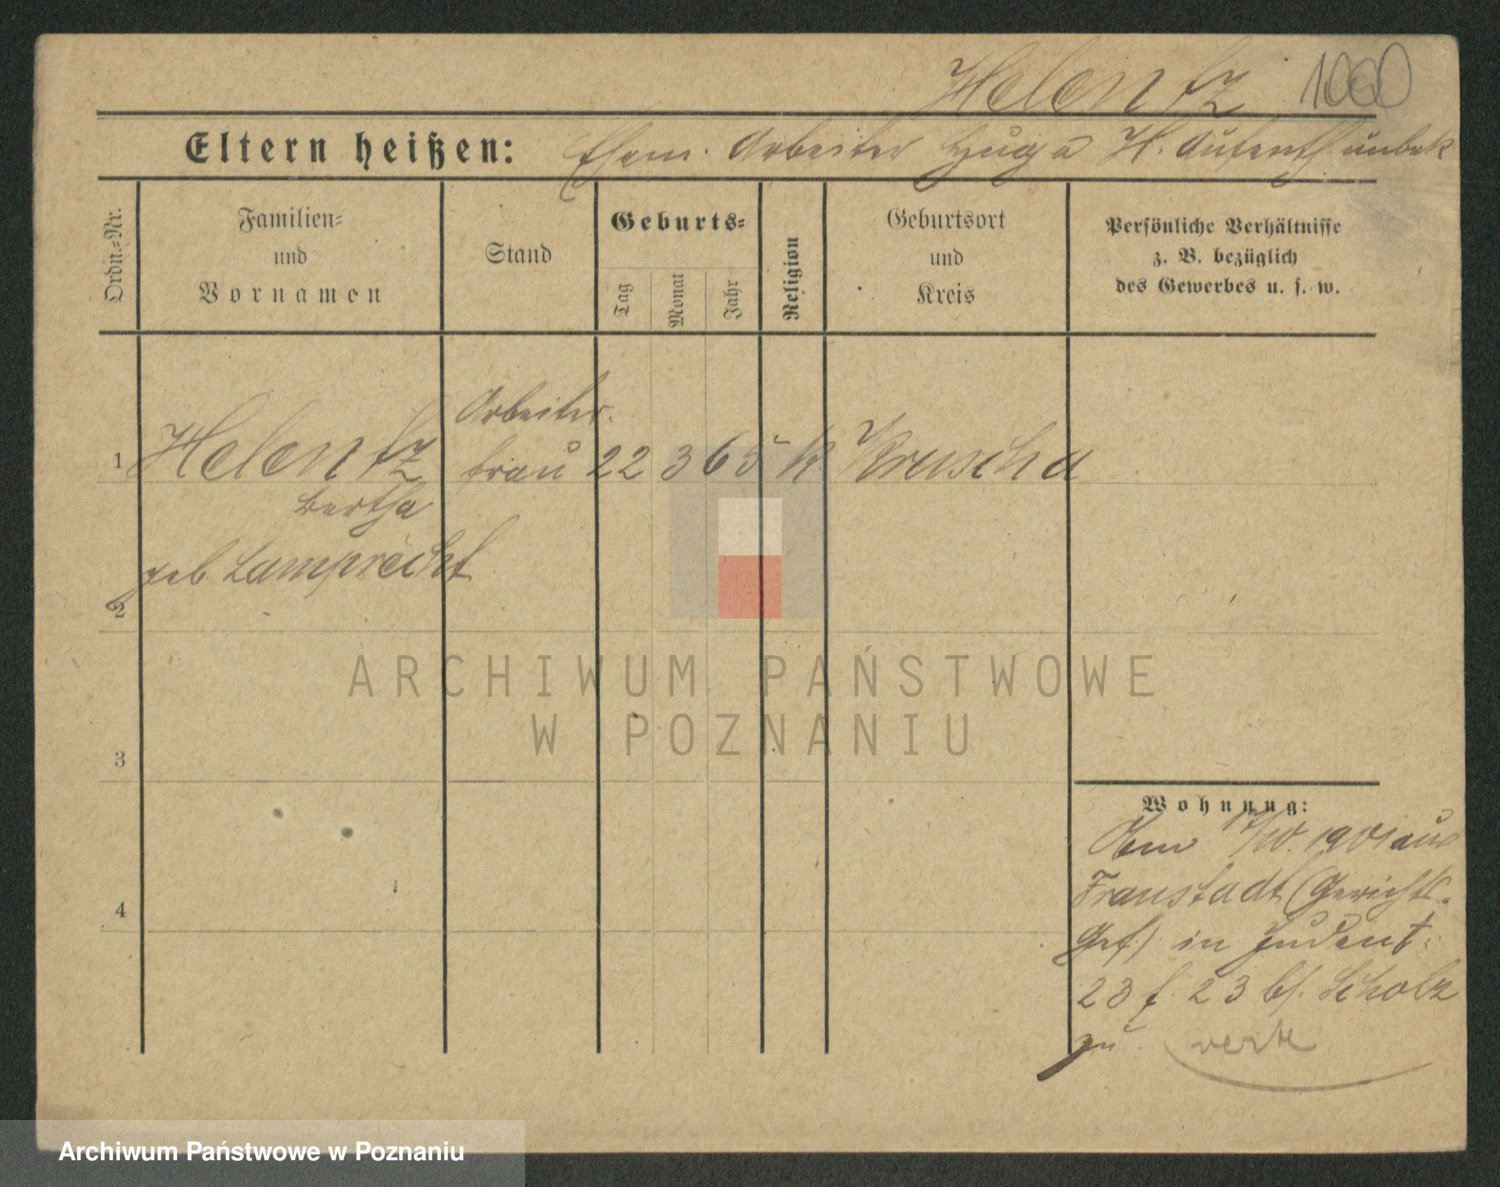 Helentz 1060
Eltern heißen: Ehem. Arbeiter Hugo H. Aufenth unbek
Ordn.-Nr.
Familien-
und
Vornamen
Stand
Geburts-
Tag
Monat
Jahr
Religion
Geburtsort
und
Kreis
Persönliche Verhältnisse
z. B. bezüglich
des Gewerbes u. s. w.
Arbeiter
1 Helentz frau 22 3 65 k Kreuscha
Bertha
geb. Lamprecht
2
3
4
Wohnung:
17/10. 1901 aus
Fraustadt (Gerichts-
Gef) in Judenst:
23 f. 23 b/. Scholz
zu
verte
ARCHIWUM PAŃSTWOWE
W POZNANIU
Archiwum Państwowe w Poznaniu